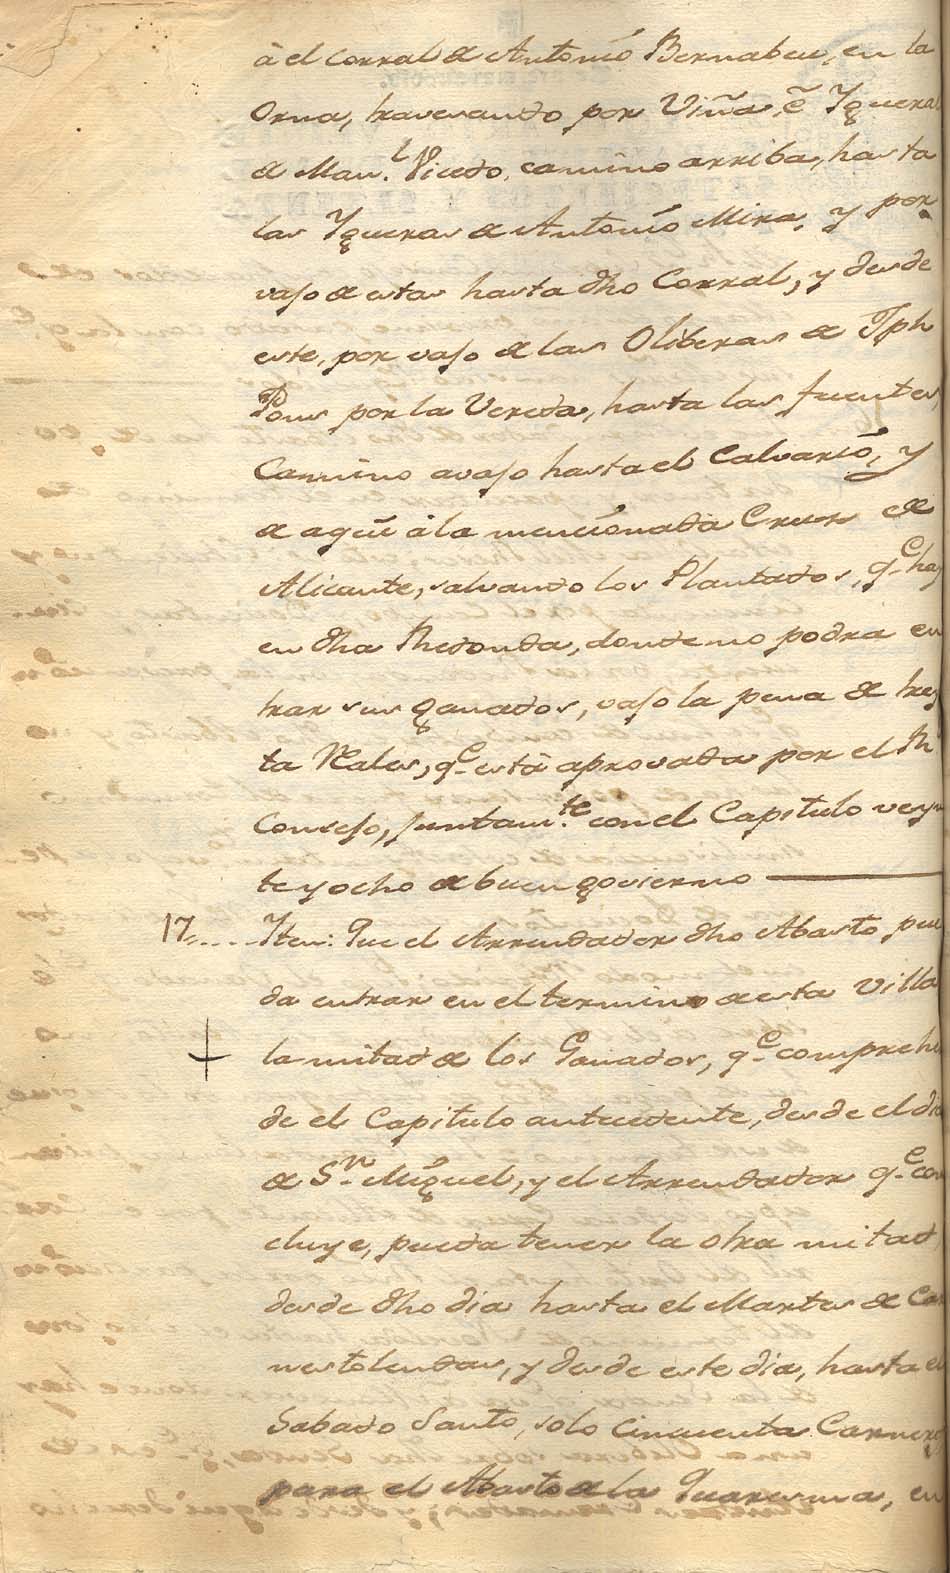 à el corral de Antonio Bernabeu, en la
Orna, travesando por Viña, é Ygueras
de Man.l Picedo, camino arriba, hasta
las Ygueras de Antonio Mira, y por
vajo de estas hasta dho Corral, y desde
este, por vajo de las Oliberas de Jph
Pons por la Vereda, hasta las fuentes,
Camino avajo hasta el Calvario, y
de aqui à la mencionada Crus de
Alicante, salvando los Plantados, q.e hay
en dha Redonda, donde no podra en
trar sus ganados, vajo la pena de trey
ta Reales, q.e está aprovada por el R.l
Consejo, juntam.te con el Capitulo veyn
te y ocho de buen govierno
17..... Yten: Que el Arrendador dho Abasto, pue
da entrar en el termino de esta Villa
la mitad de los Ganados, q.e comprehen
de el Capitulo antecedente, desde el dia
de S.n Miguel, y el Arrendador q.e con
cluye, pueda tener la otra mitad
desde dho dia hasta el Martes de Car
nestolendas, y desde este dia, hasta el
Sabado Santo, solo cinquenta Carneros
para el Abasto de la Quaresma, en